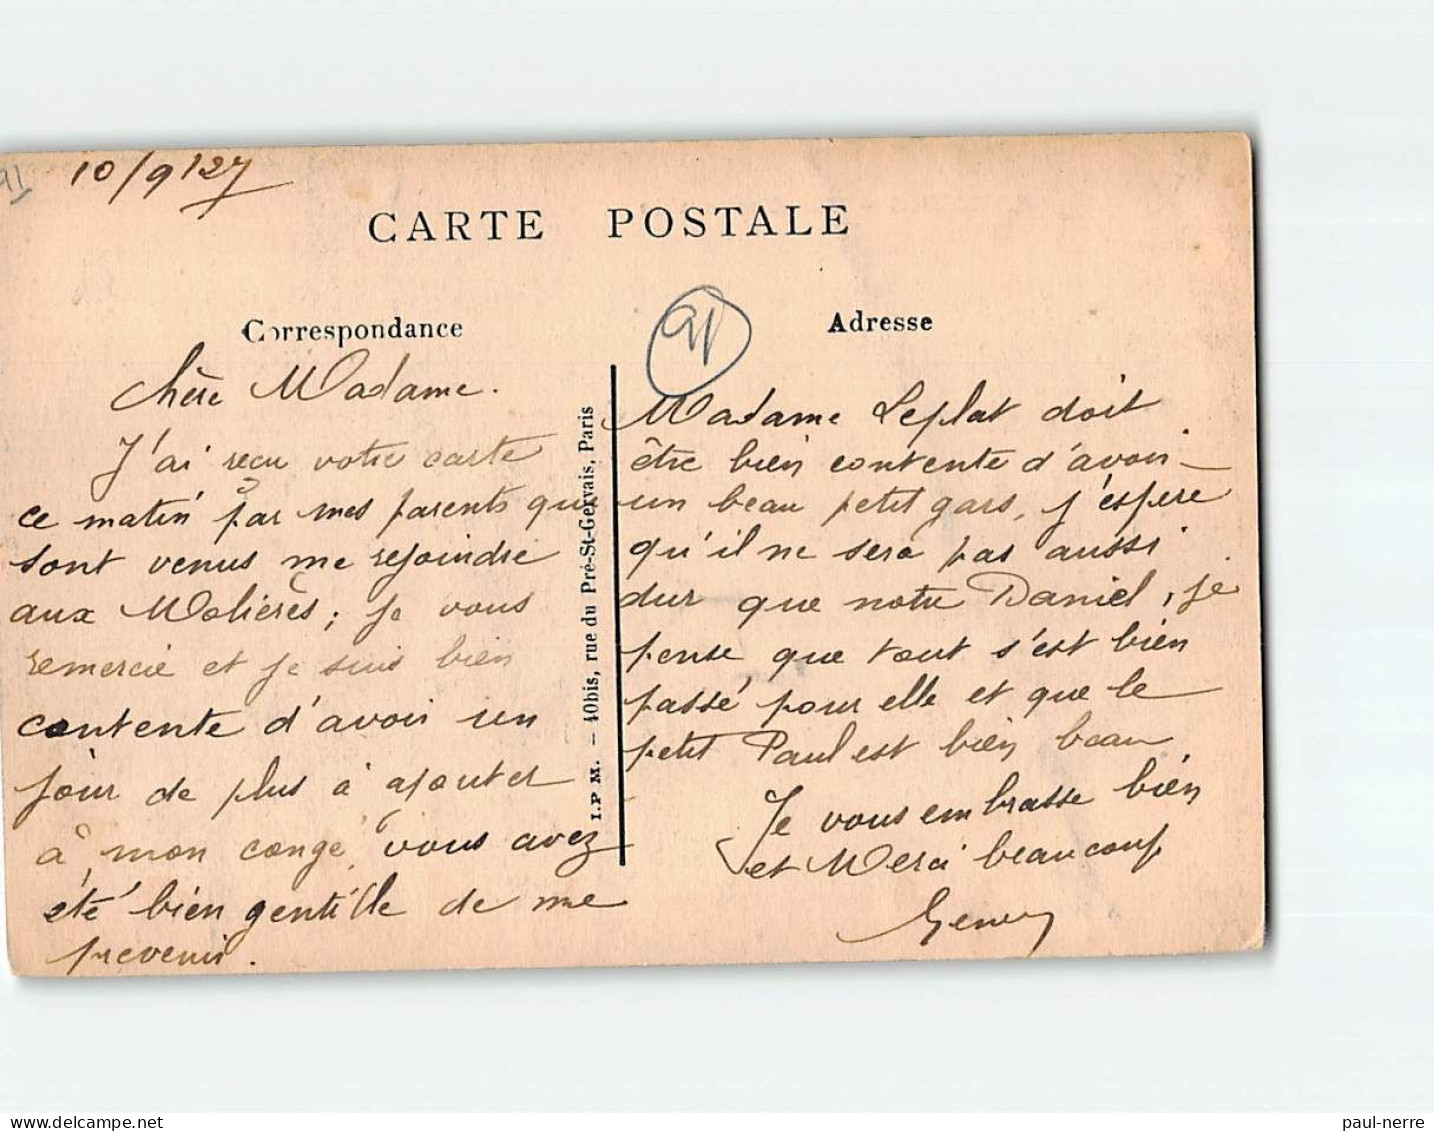 91
10/9/27
CARTE POSTALE
Correspondance
91
Adresse
Chère Madame.
J'ai reçu votre carte
ce matin par mes parents qui
sont venus me rejoindre
aux Molières; je vous
remercie et je suis bien
contente d'avoir un
jour de plus à ajouter
à mon congé, vous avez
été bien gentille de me
prevenir.
I.P M. — 40bis, rue du Pré-St-Gervais, Paris
Madame Leplat doit
être bien contente d'avoir
un beau petit gars, j'espere
qu'il ne sera pas aussi
dur que notre Daniel, je
pense que tout s'est bien
passé pour elle et que le
petit Paul est bien beau.
Je vous embrasse bien
et Merci beaucoup
paul-nerre